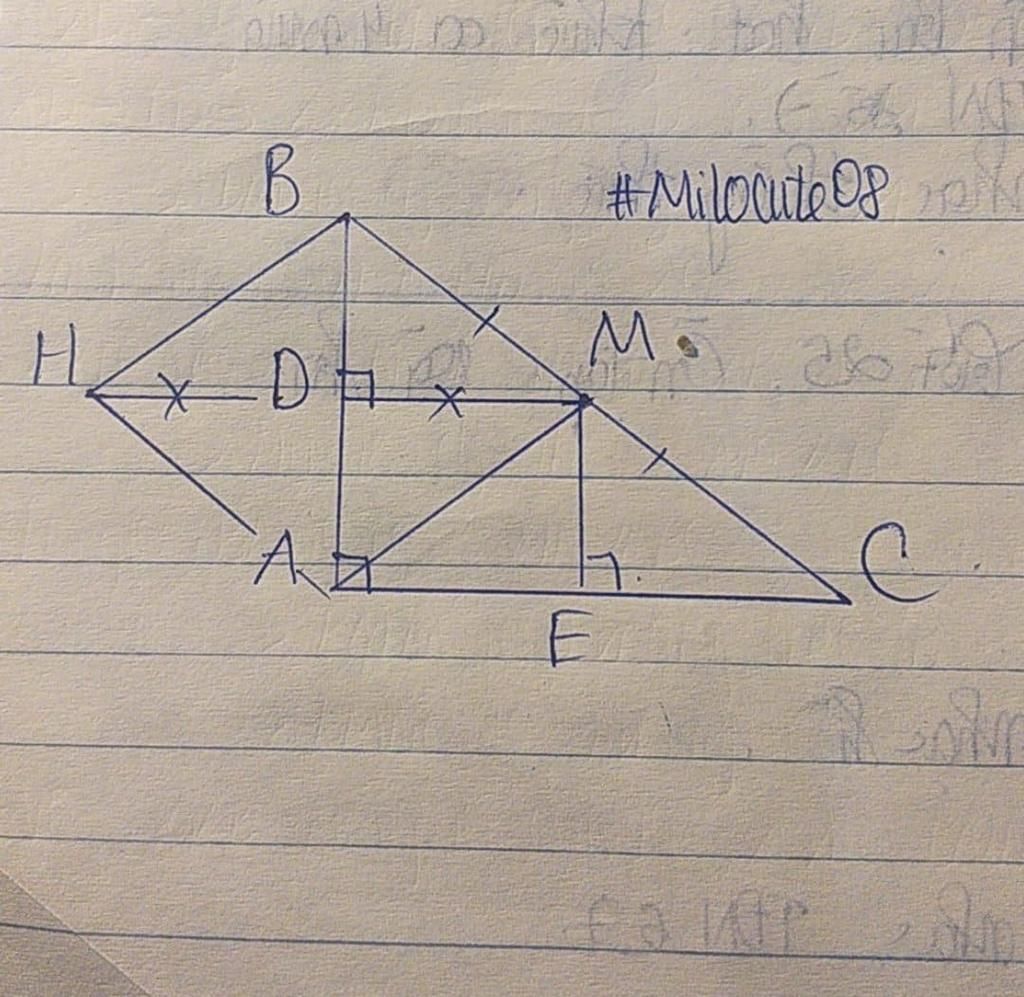 B
#Milocute08
H
D
M
A
C
E